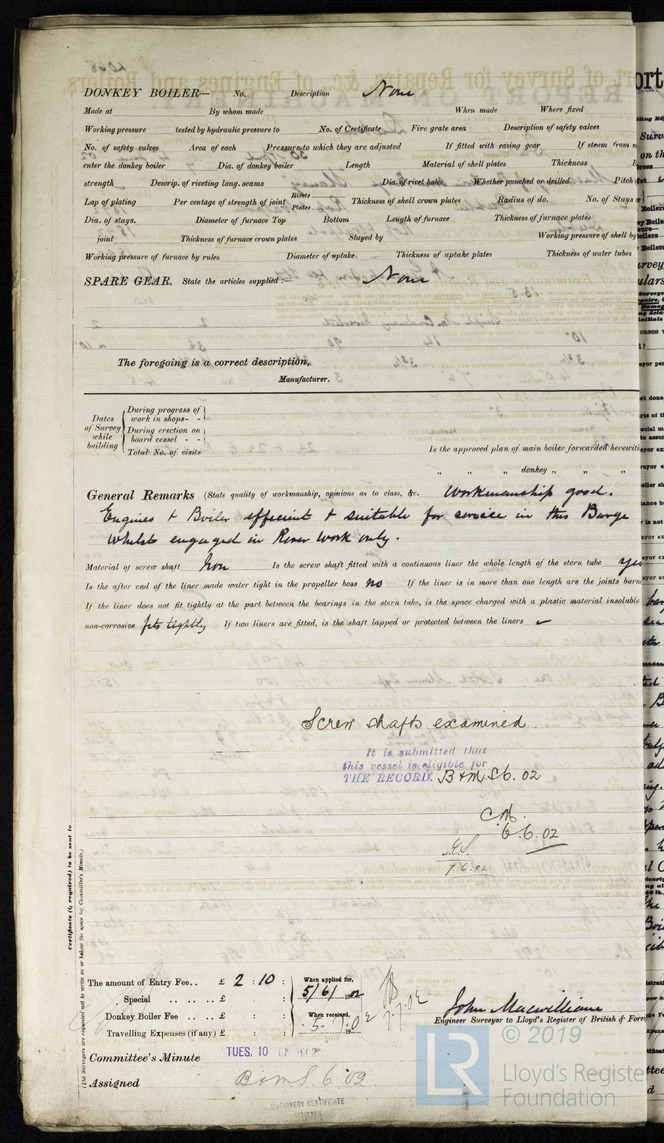 DONKEY BOILER— No. Description None
Made at By whom made When made Where fixed
Working pressure tested by hydraulic pressure to No. of Certificate Fire grate area Description of safety valves
No. of safety valves Area of each Pressure to which they are adjusted If fitted with easing gear If steam from
enter the donkey boiler Dia. of donkey boiler Length Material of shell plates Thickness
strength Descrip. of riveting long. seams Dia. of rivet holes Whether punched or drilled Pitch
Lap of plating Per centage of strength of joint Rivets Plates Thickness of shell crown plates Radius of do. No. of Stays
Dia. of stays. Diameter of furnace Top Bottom Length of furnace Thickness of furnace plates
joint Thickness of furnace crown plates Stayed by Working pressure of shell by
Working pressure of furnace by rules Diameter of uptake Thickness of uptake plates Thickness of water tubes
SPARE GEAR. State the articles supplied:— None
The foregoing is a correct description,
Manufacturer.
Dates of Survey while building
During progress of work in shops - -
During erection on board vessel - -
Total No. of visits
Is the approved plan of main boiler forwarded herewith
" " " donkey " " "
General Remarks (State quality of workmanship, opinions as to class, &c. Workmanship good.
Engines & Boiler efficient & suitable for service in this Barge
whilst engaged in River work only.
Material of screw shaft Iron Is the screw shaft fitted with a continuous liner the whole length of the stern tube yes
Is the after end of the liner made water tight in the propeller boss no If the liner is in more than one length are the joints burned
If the liner does not fit tightly at the part between the bearings in the stern tube, is the space charged with a plastic material insoluble
non-corrosive fits tightly If two liners are fitted, is the shaft lapped or protected between the liners ✓
Screw shafts examined
It is submitted that
this vessel is eligible for
THE RECORD. B&MS 6.02
6.6.02
7.6.02
Certificate (if required) to be sent to
(The Surveyors are requested not to write on or below the space for Committee's Minute.)
The amount of Entry Fee.. £ 2 : 10 : When applied for, 5/6/02
Special .. .. .. .. £ : :
Donkey Boiler Fee .. .. £ : : When received, 5.7.02
7.7.02
Travelling Expenses (if any) £ : :
John Macwilliam
Engineer Surveyor to Lloyd's Register of British & Fore
Committee's Minute TUES. 10
Assigned B&MS. 6.02
MACHINERY CERTIFICATE
WRITTEN
© 2019
LR
Lloyd's Register
Foundation